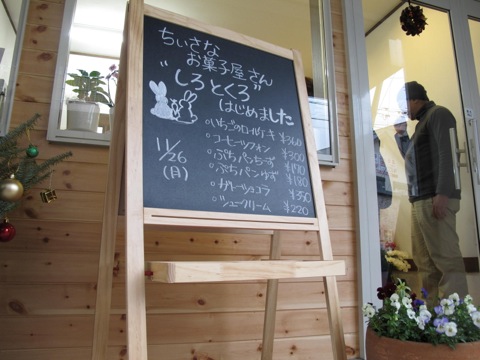 ちいさな
お菓子屋さん
"しろとくろ"
はじめました
11/26
(月)
○いちごのロールケーキ ¥360
○コーヒーシフォン ¥300
○ぷちパンちーず ¥170
○ぷちパンゆず ¥180
○ガトーショコラ ¥350
○シュークリーム ¥220